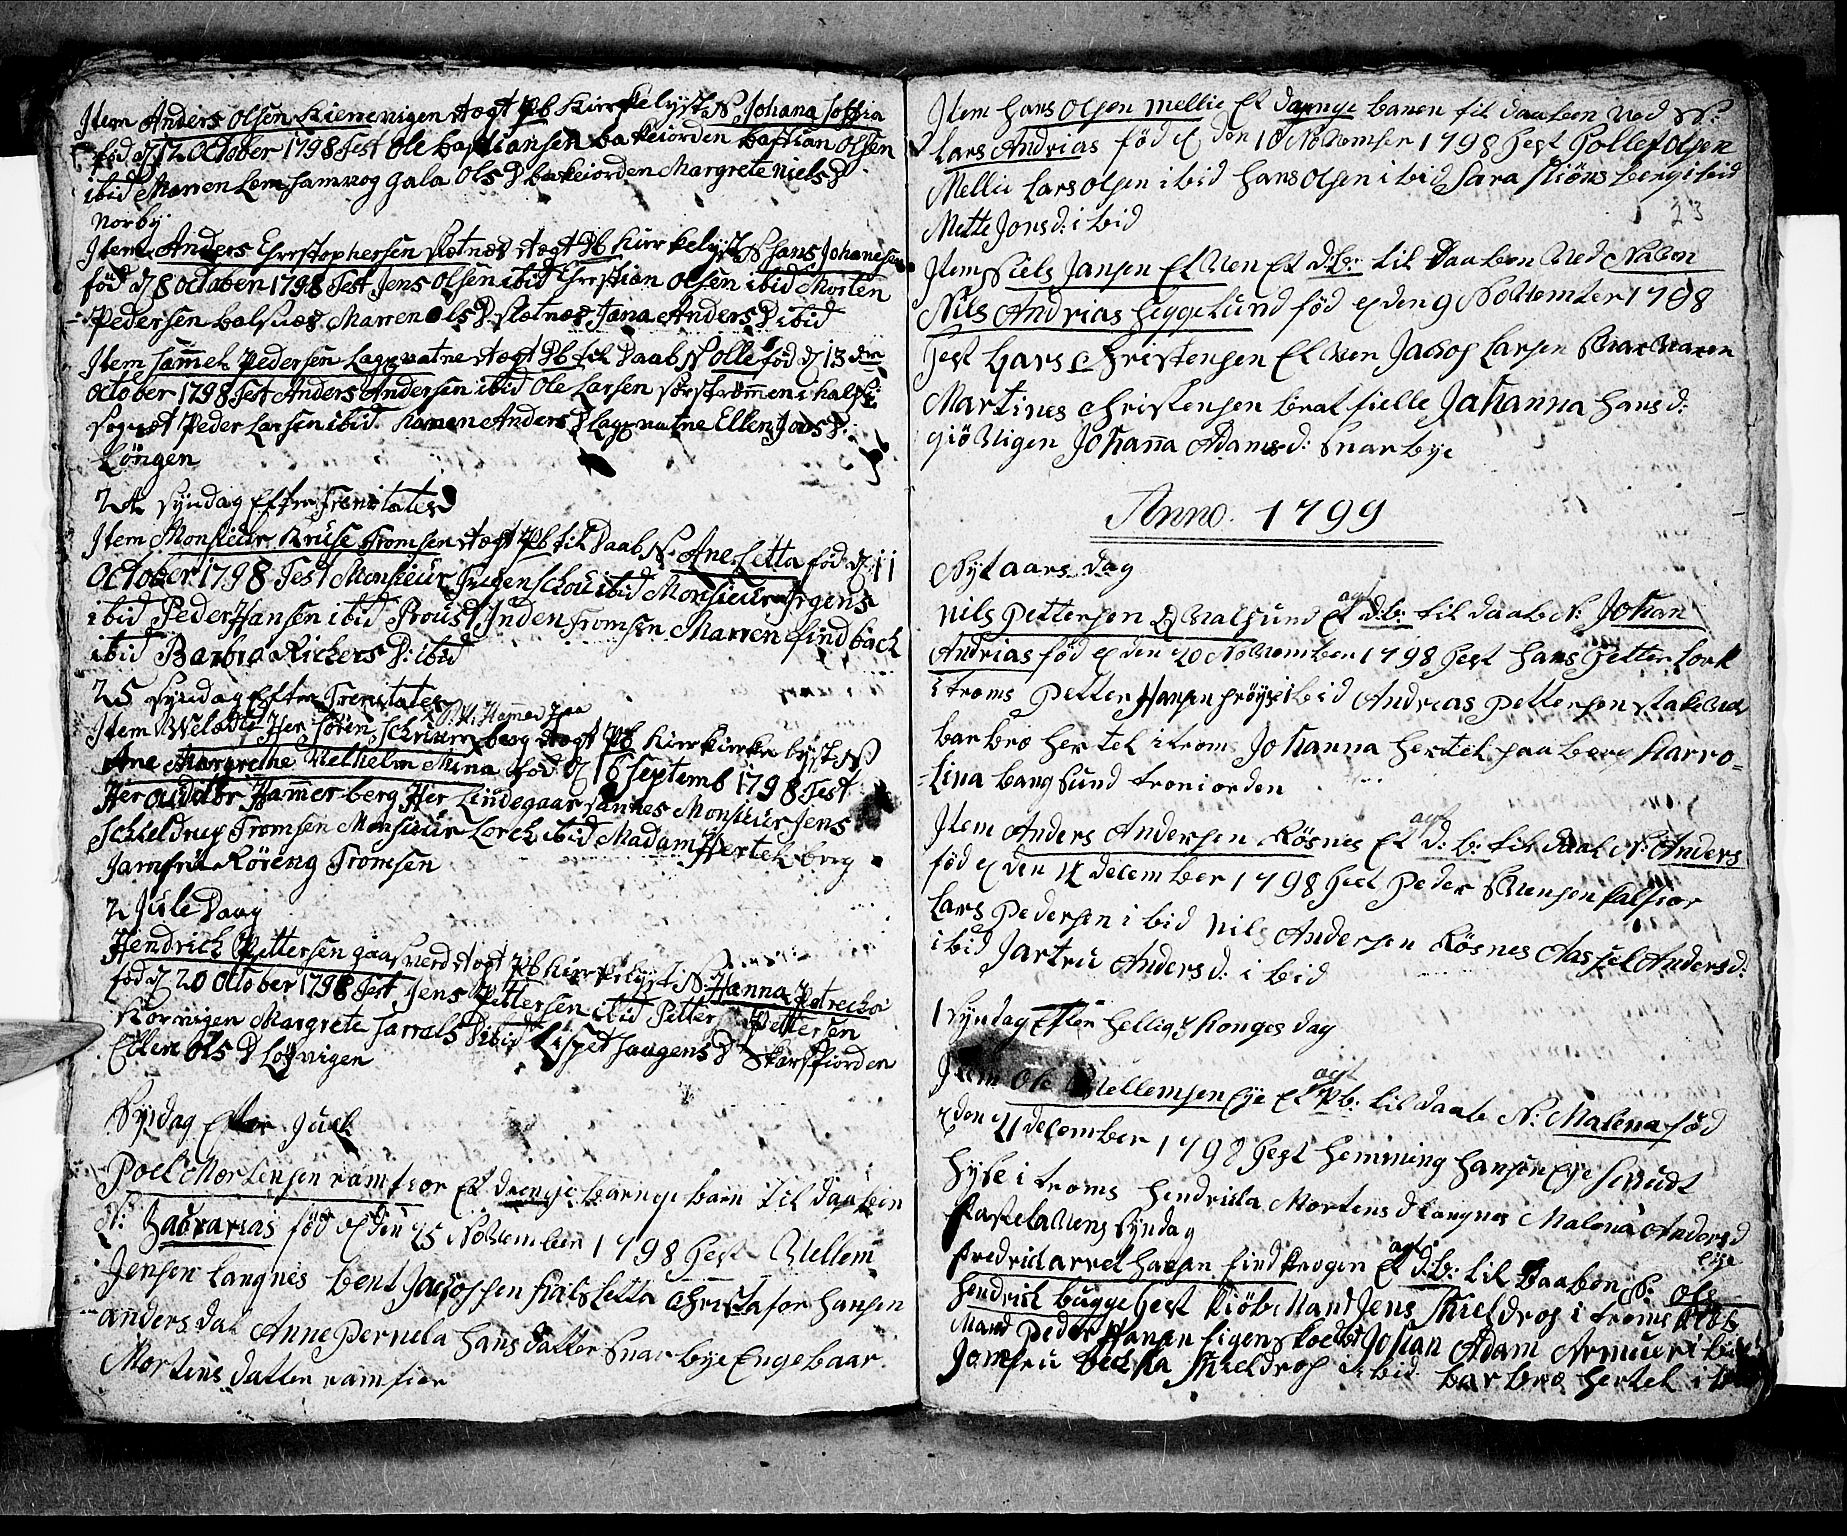 Item Anders Olsen Kierrevigen ægt Pb Kirrkelyst N Johana Soffia
fød d 12 October 1798 Test Ole Bastiansen bakeiorden Bastian Olsen
ibid Marren Lem Gala Ols D bakeiorden Margrete Niels D
Norby
Item Anders Chrestophersen Slætnæs ægt Db Kirrkelyst N Hans Johanesen
fød d 8 October 1798 Test Jens Olsen ibid Chrestian Olsen ibid Morten
Pedersen balsnæs Marren Ols D Slætnæs Jana Anders D ibid
Item Sammel Pedersen Lagesvatne ægt Db til Daab N Olle fød d 13 den
October 1798 Test Anders Andersen ibid Ole Larsen Sørstrømmen i
Sognet Peder Larsen ibid Karren Anders D Lagesvatne Ellen Jons D:
Løngen
24 Syndag Efter Trenitates
Item Monsieur Kruse Tromsen ægt Pb til Daab N: Ane Letta fød d 11
October 1798 Test Monsieur Irgens Schou ibid Monsieur Irgens
ibid Peder Hansen ibid Proust Junden Tromsen Marren Lindbach
ibid Barbra Rickers D: ibid
25 Syndag Efter Trenitates
Item Welædle Her Søren Schriwer berg ægt Pb Kirrkirke lyst N
Ane Margrethe Wilhelm Mina fød d 16 Septemb 1798 Test
Her Auditør Hammer berg Her Lindegaar Sannes Monsieur Jens
Schieldrup Tromsen Monsieur Lorck ibid Madam Hertel berg
Jamfru Røreng Tromsen
2 Jule Daag
Hendrich Pettersen gaasværd ægt Pb Kirrkelyst N: Hanna Petrecka
fød d 20 October 1798 Test Jens Pettersen ibid Petter Pettersen
Kornigen Margrete Jarrals D ibid Lispet Jaagens D Skarsfiorden
Ellen Ols D Løgvigen
Syndag Efter Juel
Poel Mortensen ramfior Et drenge barnge barn til daaben
N: Zacrarias fød d den 25 November 1798 Test Wellem
Jensen Langnes bent Jacobsen Letta Christafor Hansen
andersdal Anne Pernela Hans datter Snarbye Engebaar
Mortens datter ramfior
Item Hans Olsen Mellie Et daynge banen til daaben Ved N:
Lars Andrias fød d den 10 November 1798 Test Tollef Olsen
Mellie Lars Olsen ibid Hans Olsen ibid Sara Skiøns berg ibid
23
Mette Jons d: ibid
Item Niels Jansen Elven Et d:b: til Daaben Ved Naven
Nils Andrias Heggelund fød d den 9 November 1798
Test Hans Christensen Elven Jacob Larsen Svarvaren
Martines Christensen bratfielle Johanna Hans d:
giøvigen Johanna Adams d: Snarbye
Anno. 1799
Nytaars dag
ægt
Nils Pettersen Qvalsund Et d:b: til daab N: Johan
Andrias fød d den 20 November 1798 Test Hans Petter Lork
i troms Petter Hansen frøys ibid Andreas Pettersen
barbro Hertel i troms Johanna Hertel paa berg Karro=
=lina bangsund troniorden
ægt
Item Anders Andersen Røsnes Et d:b: til daab N: Anders
fød d den 4 december 1798 Test Peder Svensen Kalfior
Lars Pedersen ibid Nils Andersen Røsnes Aassel Anders d:
ibid Jartru Anders d: ibid
1 Syndag Efter Hellig 3 Konges dag
ægt
Item Ole Wellemsen Eye Et Pb: til daab N: Malena fød
d den 21 december 1798 Test Hemming Hansen Eye Skudt
Hyse i troms Hendricka Mortens d Langnes Malena Anders d
Eye
Fastelavens Syndag
ægt
Fredrick arrel Hagen Findkrogen Et d:b: til Daaben N: Ole
Hendrick bugge Test Kiøbmand Jens Skieldrop i troms Kiøb
Mand Peder Hansen ligens Johan Adam Armuer ibid
Jomfru Skieldrop ibid barbro Hertel ibid